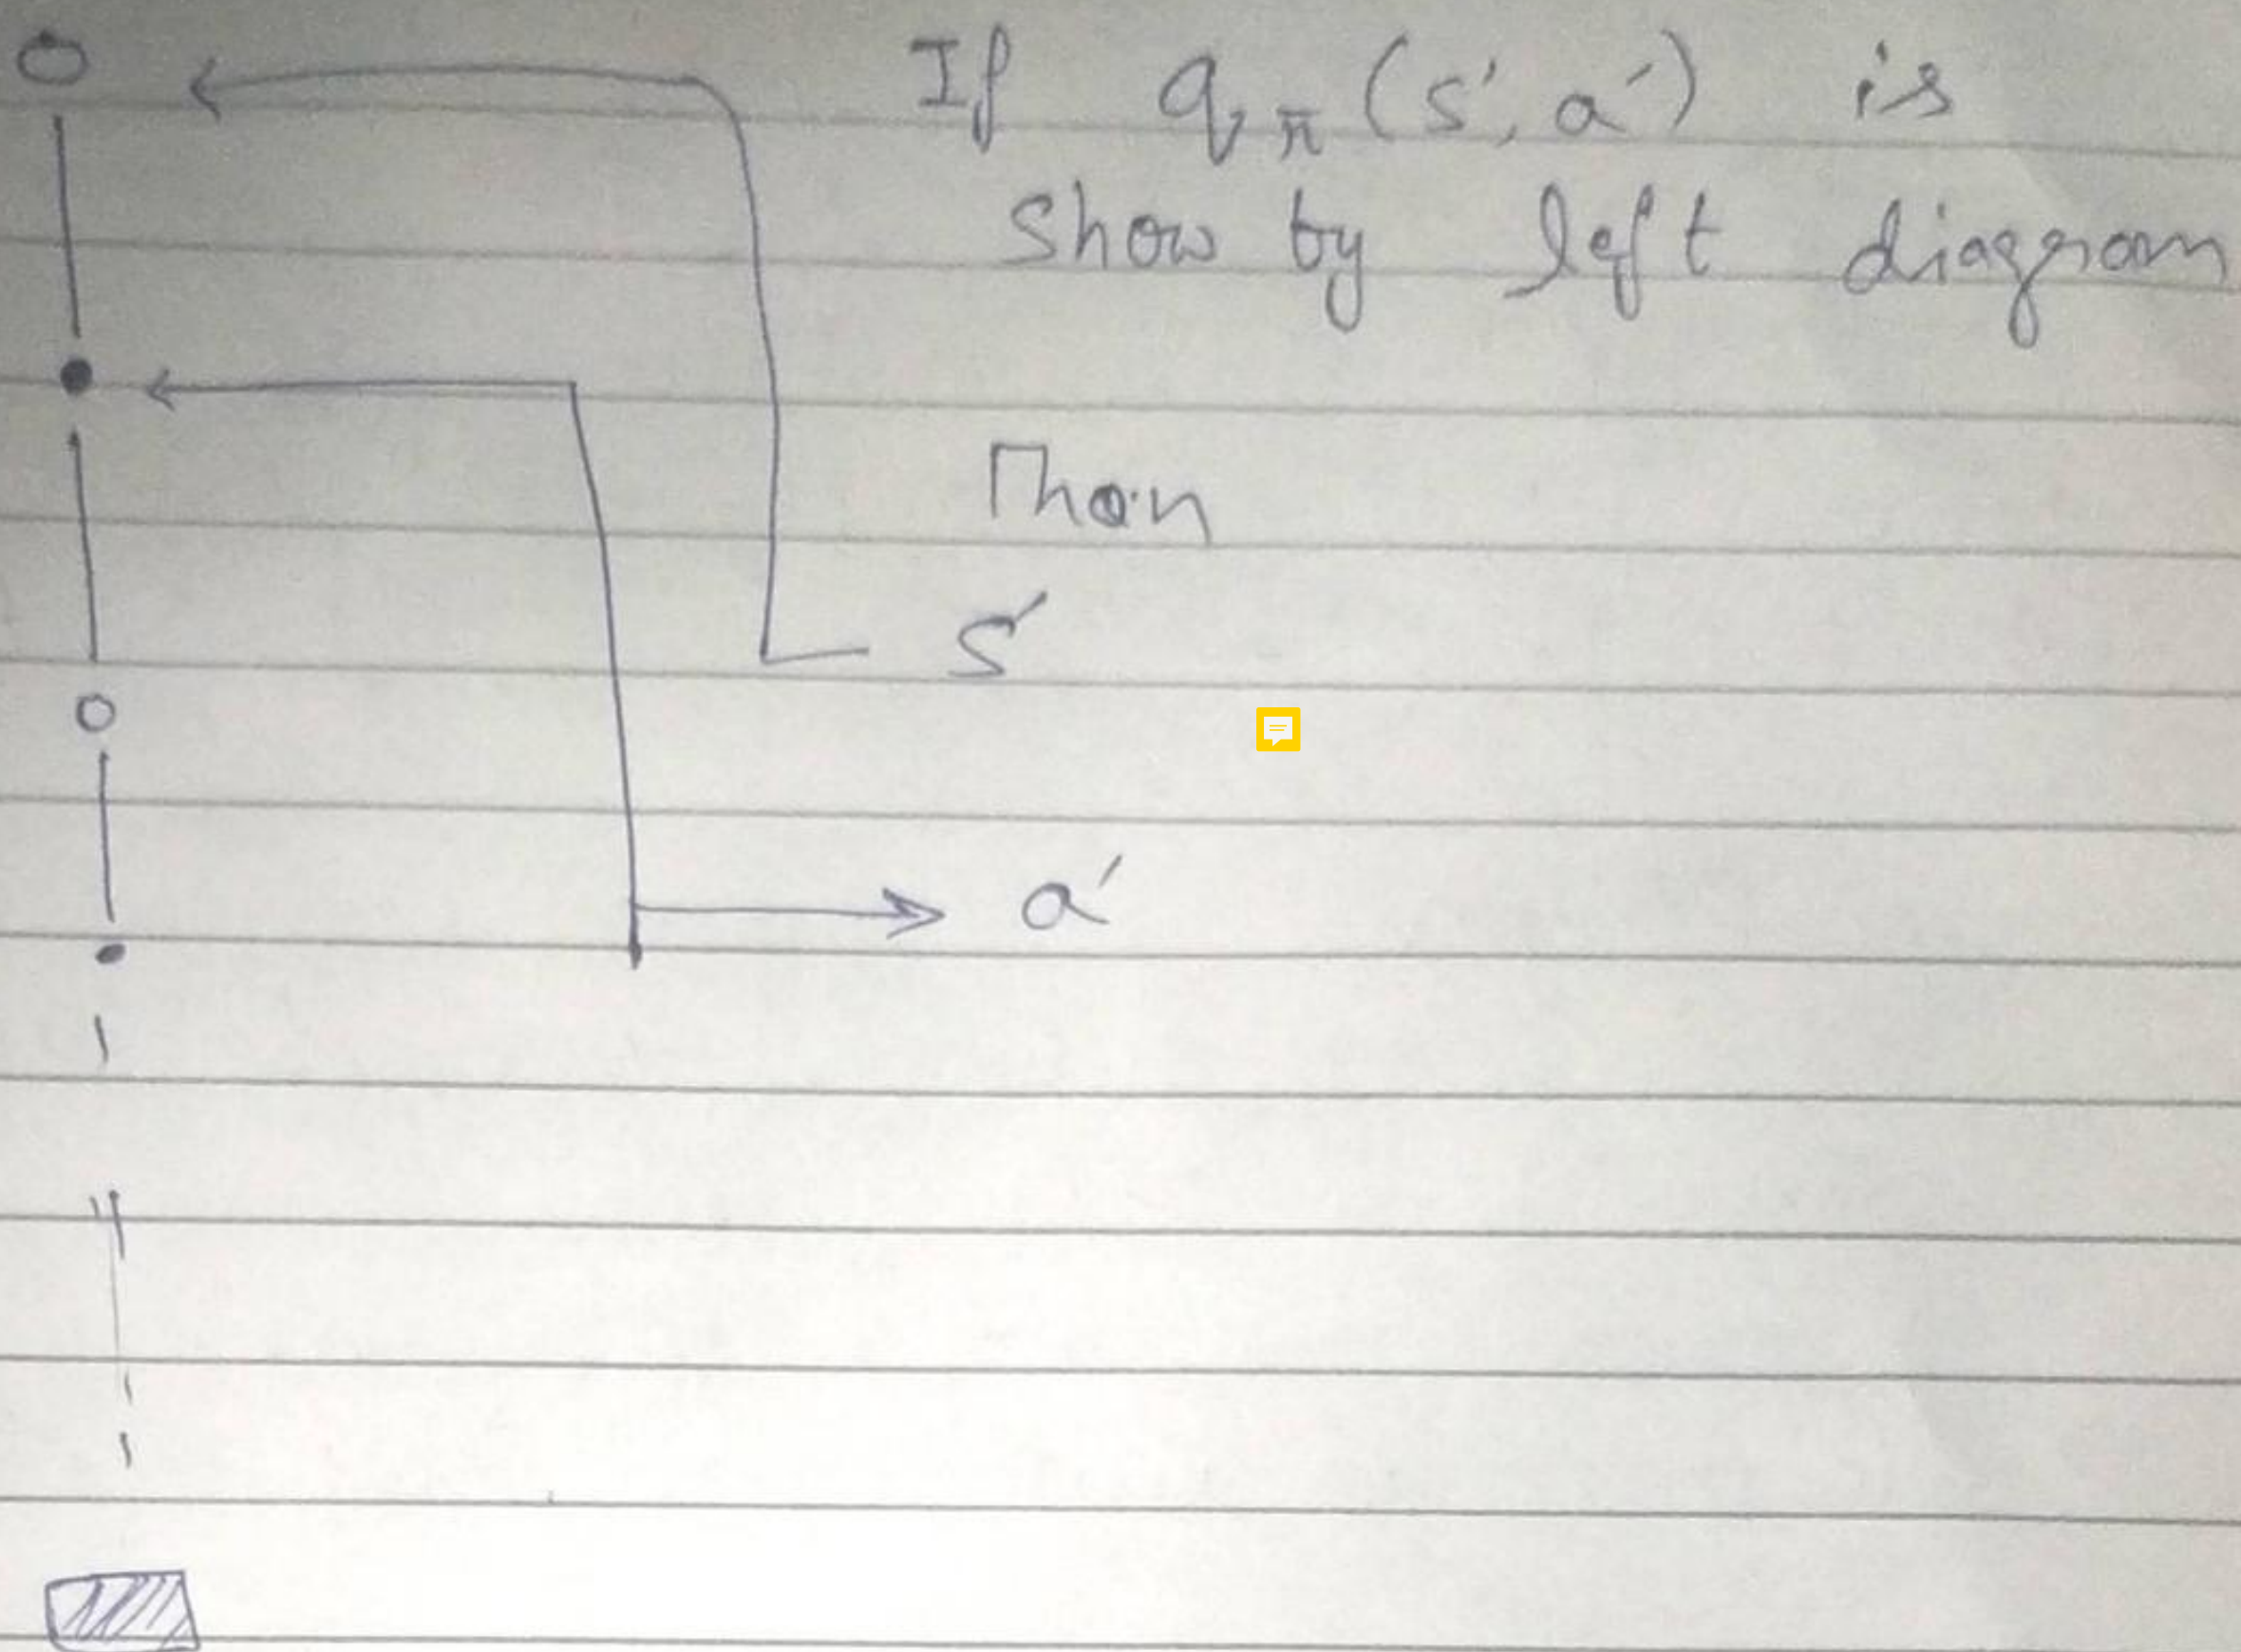 If qπ(s', a') is
show by left diagram
Then
s'
a'